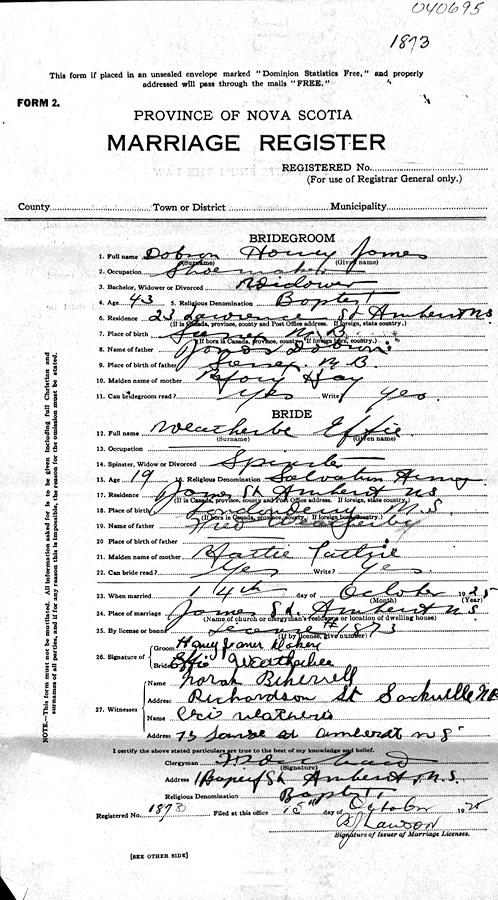 040695
1873
This form if placed in an unsealed envelope marked "Dominion Statistics Free," and properly
addressed will pass through the mails "FREE."
FORM 2.
PROVINCE OF NOVA SCOTIA
MARRIAGE REGISTER
REGISTERED No.
(For use of Registrar General only.)
County Town or District Municipality
BRIDEGROOM
1. Full name James
(Surname) (Given name)
2. Occupation Shoemaker
3. Bachelor, Widower or Divorced Widower
4. Age 43 5. Religious Denomination Baptist
6. Residence 23 Lawrence St Amherst NS
(If in Canada, province, county and Post Office address. If foreign, state country.)
7. Place of birth N.B.
(If born in Canada, province, county. If foreign born, country.)
8. Name of father James
9. Place of father N.B.
10. Maiden name of mother Hay
11. Can bridegroom read? Yes Write? Yes.
BRIDE
12. Full name Weatherbe Effie
(Surname) (Given name)
13. Occupation
14. Spinster, Widow or Divorced Spinster
15. Age 19 16. Religious Denomination Salvation Army
17. Residence James St Amherst NS
(If in Canada, province, county and Post Office address. If foreign, state country.)
18. Place of birth Londonderry N.S.
(If born in Canada, province, county. If foreign born, country.)
19. Name of father Fred Weatherby
20. Place of birth of father
21. Maiden name of mother Hattie
22. Can bride read? Yes Write? Yes.
23. When married 14th day of October 1925
(Month) (Year)
24. Place of marriage James St. Amherst N.S.
(Name of church or clergyman's residence or location of dwelling house)
25. By license or banns License # 1873
(If by license, give number)
26. Signature of Groom James
Bride Effie Weatherbee
27. Witnesses Name Norah
Address Richardson St Sackville NB
Name
Address St Amherst N S
I certify the above stated particulars are true to the best of my knowledge and belief.
Clergyman
(Signature)
Address St Amherst, N.S.
Religious Denomination Baptist
Registered No. 1873 Filed at this office 15th day of October 1925
Lawson
Signature of Issuer of Marriage Licenses.
[SEE OTHER SIDE]
NOTE.—This form must not be mutilated. All information asked for is to be given including full Christian and
surnames of all parties, and if for any reason this is impossible, the reason for the omission must be stated.